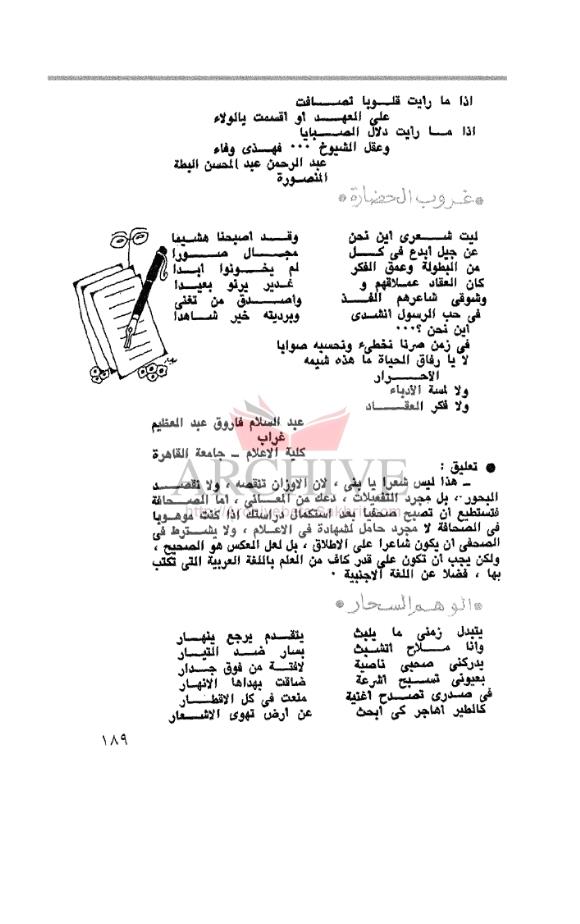 اذا ما رايت قلوبا تصافت
على العهد او اقسمت بالولاء
اذا ما رايت دلال الصبايا
وعقل الشيوخ ٠٠٠ فهذى وفاء
عبد الرحمن عبد المحسن البطة
المنصورة
* غروب الحضارة *
ليت شعرى اين نحن وقد اصبحنا هشيما
عن جيل أبدع فى كل مجال صورا
من البطولة وعمق الفكر لم يخونوا ابدا
كان العقاد عملاقهم و غدير يرنو بعيدا
وشوقى شاعرهم الفذ واصدق من تغنى
فى حب الرسول انشدى وبرديته خير شاهدا
اين نحن ؟٠٠٠
فى زمن صرنا نخطىء ونحسبه صوابا
لا يا رفاق الحياة ما هذه شيمه
الاحرار
ولا لمسة الأدباء
ولا فكر العقاد
عبد السلام فاروق عبد العظيم
غراب
كلية الاعلام – جامعة القاهرة
ARCHIVE
● تعليق :
– هذا ليس شعرا يا بنى ، لان الاوزان تنقصه ، ولا نقصد
البحور ، بل مجرد التفعيلات ، دعك من المعانى ، اما الصحافة
فتستطيع ان تصبح صحفيا بعد استكمال دراستك اذا كنت موهوبا
فى الصحافة لا مجرد حامل لشهادة فى الاعلام ، ولا يشترط فى
الصحفى ان يكون شاعرا على الاطلاق ، بل لعل العكس هو الصحيح ،
ولكن يجب ان تكون على قدر كاف من العلم باللغة العربية التى تكتب
بها ، فضلا عن اللغة الاجنبية ٠
* الوهم السحار *
يتبدل زمنى ما يلبث يتقدم يرجع ينهار
وانا ملاح اتشبث بسار ضد التيار
يدركنى صحبى ناصية لافتة من فوق جدار
بعيونى تسبح اشرعة ضاقت بهداها الانهار
فى صدرى تصدح اغنية منعت فى كل الاقطار
كالطير اهاجر كى ابحث عن ارض تهوى الاشعار
١٨٩